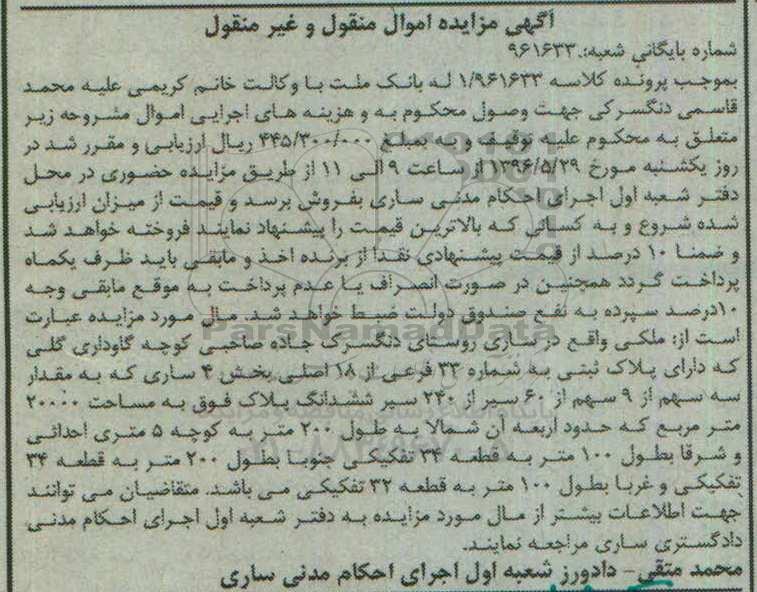 آگهی مزایده اموال منقول و غیر منقول
شماره بایگانی شعبه: ۹۶۱۶۳۳
بموجب پرونده کلاسه ۱/۹۶۱۶۳۳ له بانک ملت با وکالت خانم کریمی علیه محمد
قاسمی دنگسرکی جهت وصول محکوم به و هزینه های اجرایی اموال مشروحه زیر
متعلق به محکوم علیه توقیف و به مبلغ ۴۴۵/۳۰۰/۰۰۰ ریال ارزیابی و مقرر شد در
روز یکشنبه مورخ ۱۳۹۶/۵/۲۹ از ساعت ۹ الی ۱۱ از طریق مزایده حضوری در محل
دفتر شعبه اول اجرای احکام مدنی ساری بفروش برسد و قیمت از میزان ارزیابی
شده شروع و به کسانی که بالاترین قیمت را پیشنهاد نمایند فروخته خواهد شد
و ضمنا ۱۰ درصد از قیمت پیشنهادی نقدا از برنده اخذ و مابقی باید ظرف یکماه
پرداخت گردد همچنین در صورت انصراف یا عدم پرداخت به موقع مابقی وجه
۱۰درصد سپرده به نفع صندوق دولت ضبط خواهد شد. مال مورد مزایده عبارت
است از: ملکی واقع در ساری روستای دنگسرک جاده صاحبی کوچه گاوداری گلی
که دارای پلاک ثبتی به شماره ۳۳ فرعی از ۱۸ اصلی بخش ۴ ساری که به مقدار
سه سهم از ۹ سهم از ۶۰ سیر از ۲۴۰ سیر ششدانگ پلاک فوق به مساحت ۲۰۰۰۰
متر مربع که حدود اربعه آن شمالا به طول ۲۰۰ متر به کوچه ۵ متری احداثی
و شرقا بطول ۱۰۰ متر به قطعه ۳۴ تفکیکی جنوبا بطول ۲۰۰ متر به قطعه ۳۴
تفکیکی و غربا بطول ۱۰۰ متر به قطعه ۳۲ تفکیکی می باشد. متقاضیان می توانند
جهت اطلاعات بیشتر از مال مورد مزایده به دفتر شعبه اول اجرای احکام مدنی
دادگستری ساری مراجعه نمایند.
محمد متقی- دادورز شعبه اول اجرای احکام مدنی ساری
ParsNamadData